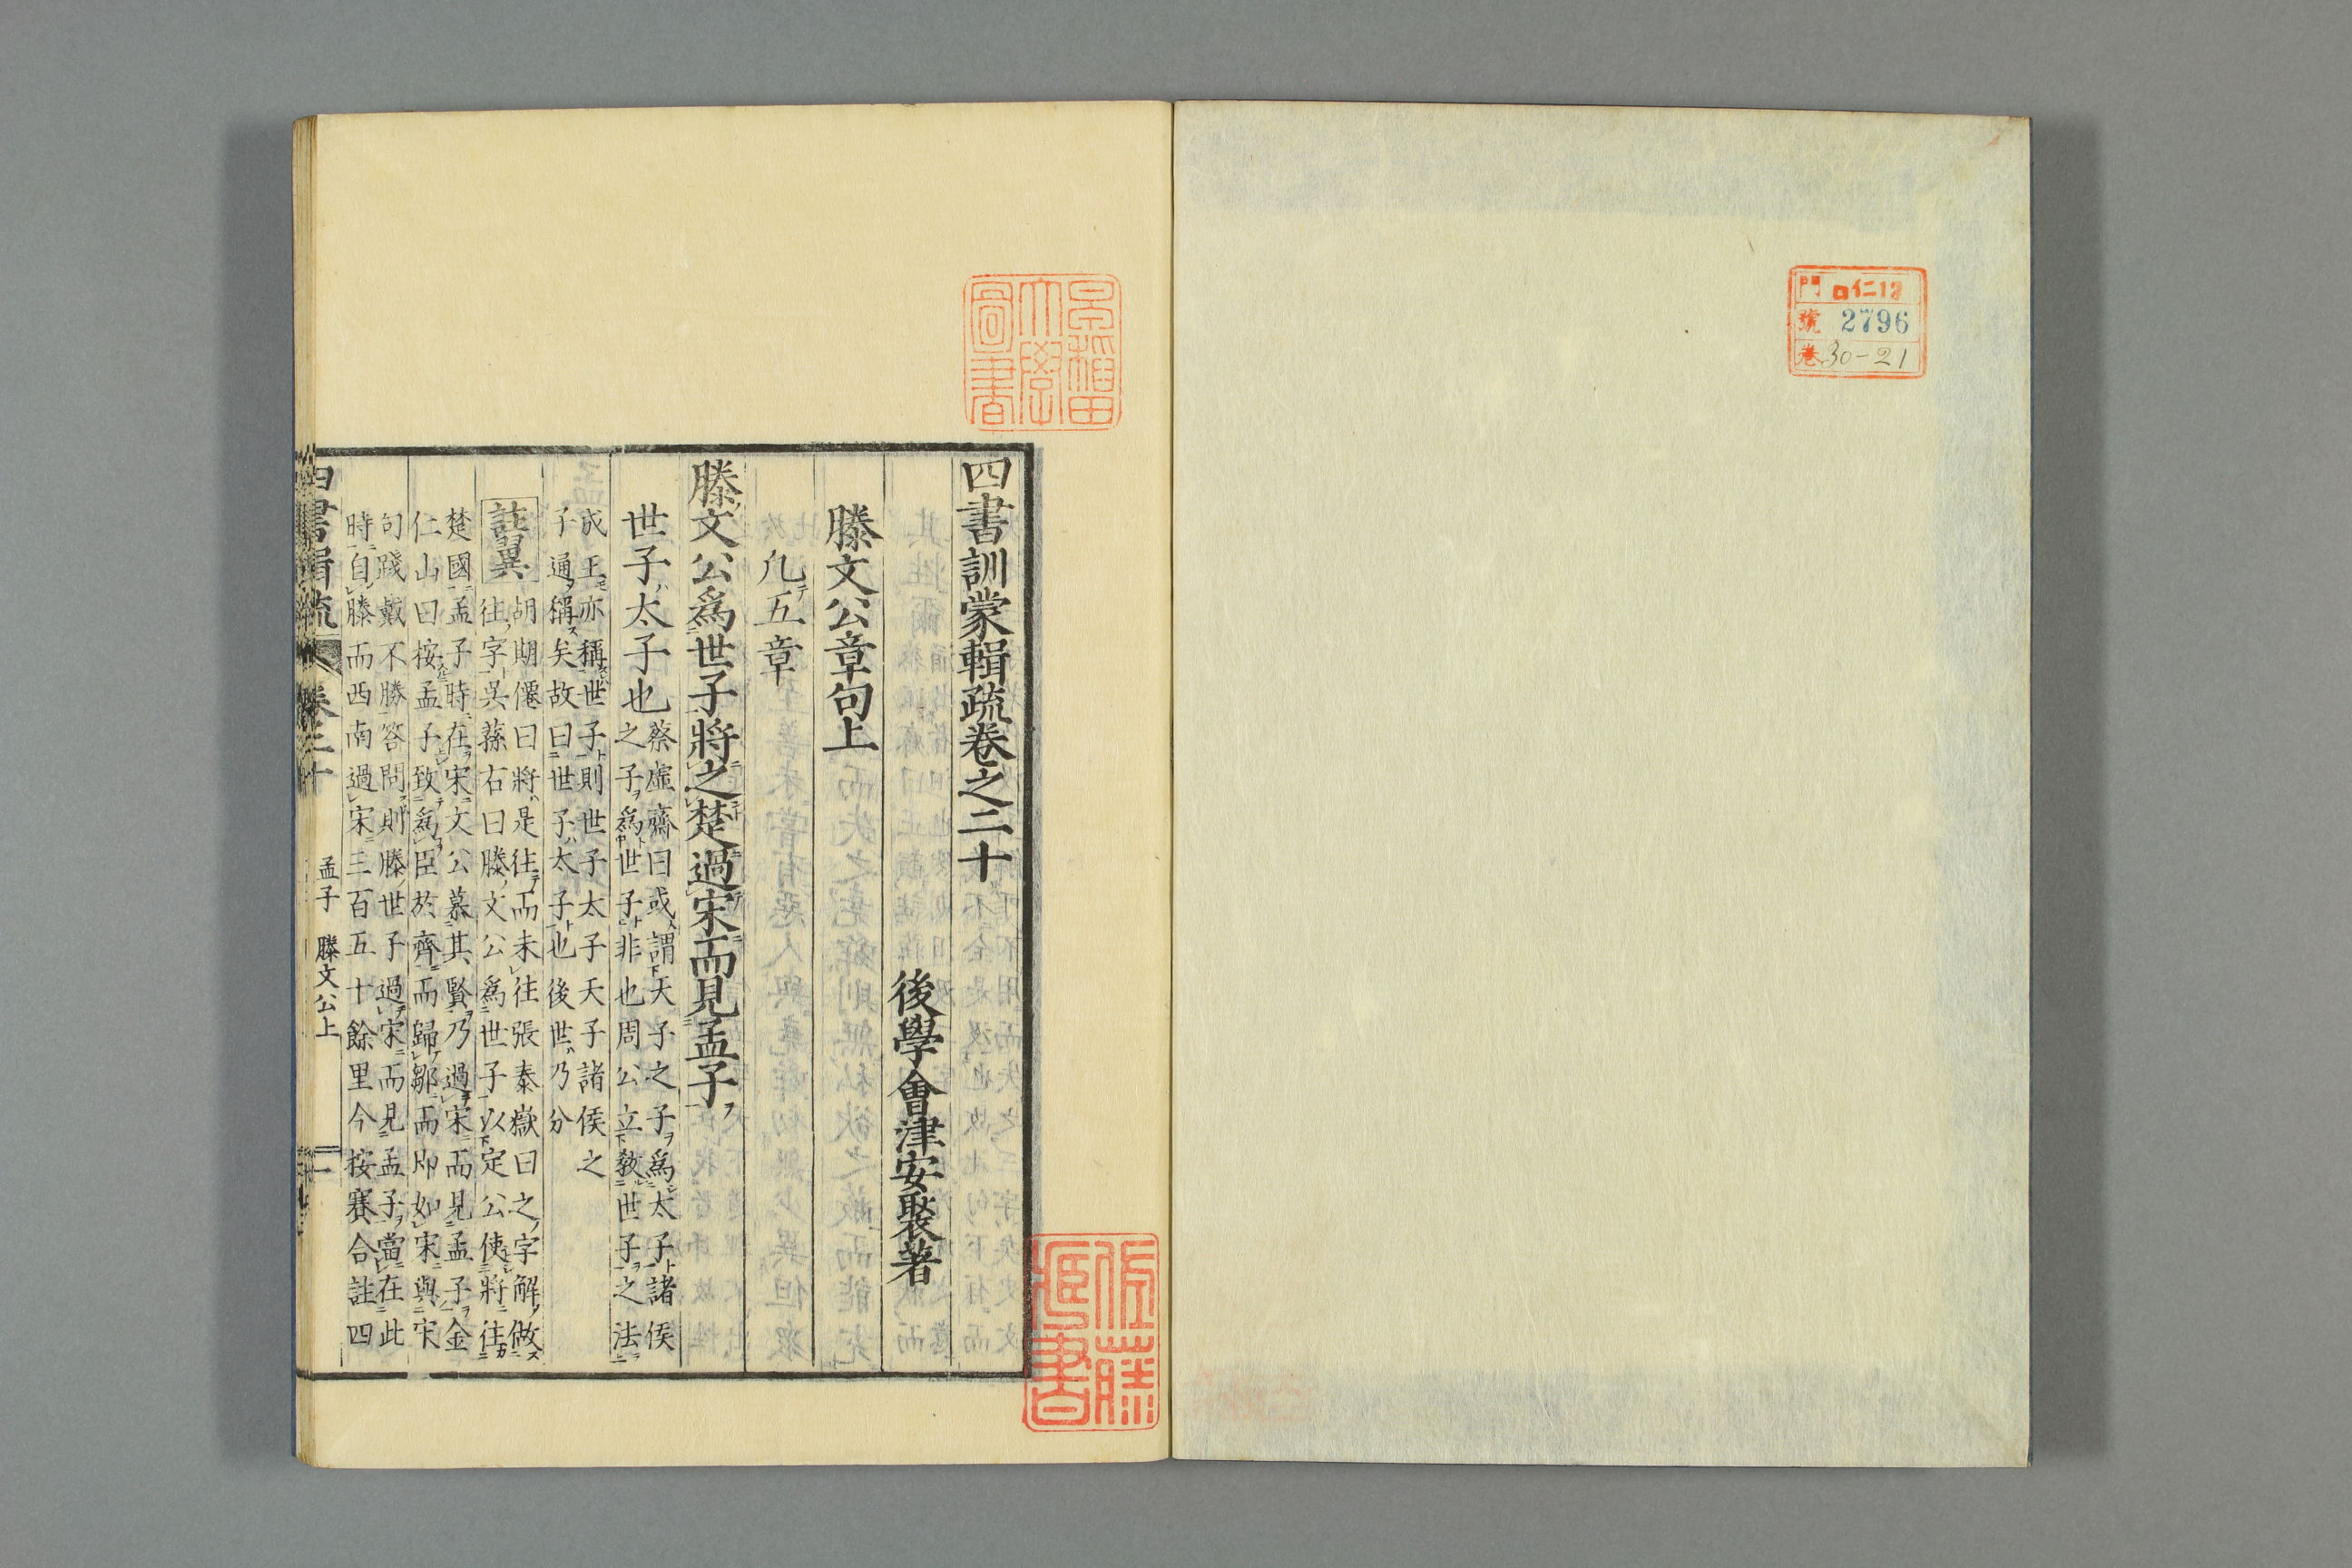 門 ロ仁12
號 2796
卷 30-21
早稲田大學圖書
四書訓蒙輯疏卷之二十
後學會津安褧著
滕文公章句上
凡五章
滕文公爲世子將之楚過宋而見孟子
世子太子也
蔡虛齋曰或謂天子之子爲太子諸侯
之子爲世子非也周公立敎世子之法
成王亦稱世子則世子太子天子諸侯之
子通稱矣故曰世子太子也後世乃分
註翼
胡期僊曰將是往而未往張泰嶽曰之字解做
往字吳蓀右曰滕文公爲世子以定公使將往
楚國孟子時在宋文公慕其賢乃過宋而見孟子金
仁山曰按孟子致爲臣於齊而歸鄒而卽如宋與宋
句踐戴不勝答問則滕世子過宋而見孟子當在此
時自滕而西南過宋三百五十餘里今按賽合註四
四書輯疏 卷二十 孟子 滕文公上 一
佐藤
書